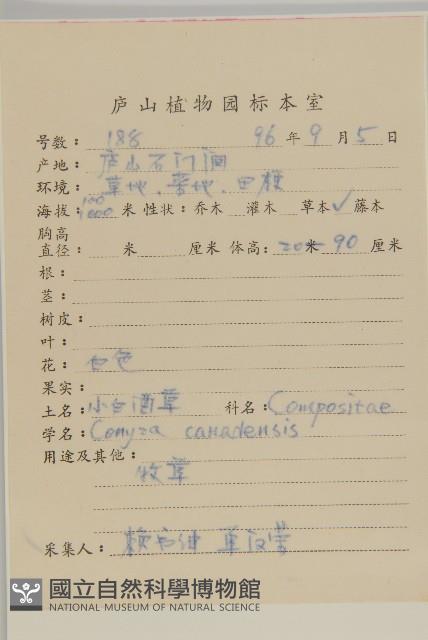 庐山植物园标本室
号数：188 96年9月5日
产地：庐山石门涧
环境：草地．荒地．田缘
海拔：100 1000米 性状：乔木 灌木 草本✓藤木
胸高
直径： 米 厘米 体高：20米90厘米
根：
茎：
树皮：
叶：
花：白色
果实：
土名：小白酒草 科名：Compositae
学名：Conyza canadensis
用途及其他：
牧草
采集人：
國立自然科學博物館
NATIONAL MUSEUM OF NATURAL SCIENCE